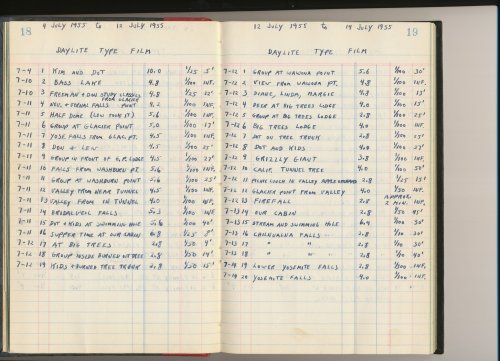 18
4 JULY 1955 to 12 JULY 1955
DAYLITE TYPE FILM
7-4 1 KIM AND DOT 10.0 1/25 5'
7-10 2 BASS LAKE 4.8 1/100 INF.
7-10 3 FREEMAN & DON STUDY GLACIER 4.8 1/25 12'
FROM GLACIER
7-11 4 NEV. & VERNAL FALLS POINT 4.2 1/100 INF.
7-11 5 HALF DOME (LEW TOOK IT) 5.6 1/100 INF.
7-11 6 GROUP AT GLACIER POINT 5.0 1/100 17'
7-11 7 YOSE FALLS FROM GLAC. PT. 4.5 1/100 INF.
7-11 8 DON & LEW 4.5 1/100 25'
7-11 9 GROUP IN FRONT OF G.P. LODGE 4.5 1/100 27'
7-11 10 FALLS FROM WASHBURN PT. 5.6 1/100 INF.
7-11 11 GROUP AT WASHBURN POINT 5.6 1/100 25'
7-11 12 VALLEY FROM NEAR TUNNEL 4.5 INF.
7-11 13 VALLEY FROM IN TUNNEL 4.0 1/100 INF.
7-11 14 BRIDALVEIL FALLS 1/100 INF.
7-11 15 DOT & KIDS AT SWIMMIN HOLE 5.6 1/100 40'
7-11 16 SUPPER TIME AT OUR CABIN 6.8 1/25 8'
7-12 17 AT BIG TREES 2.8 1/50 9'
7-12 18 GROUP INSIDE BURNED OUT TREE 2.8 1/50 14'
7-12 19 KIDS & BURNED TREE TRUNK 2.8 1/50 15'
12 JULY 1955 to 14 JULY 1955
19
DAYLITE TYPE FILM
7-12 1 GROUP AT WAWONA POINT 5.6 1/100 30'
7-12 2 VIEW FROM WAWONA PT. 4.8 1/100 INF.
7-12 3 DIANE, LINDA, MARGIE 4.8 1/100 15'
7-12 4 DEER AT BIG TREES LODGE 4.0 1/100 15'
7-12 5 GROUP AT BIG TREES LODGE 2.8 1/100 25'
7-12 6 BIG TREES LODGE 4.0 1/100 INF.
7-12 7 DOT ON TREE TRUCK 2.8 1/100 25'
7-12 8 DOT AND KIDS 4.0 1/100 27'
7-12 9 GRIZZLY GIANT 3.8 1/100 INF.
7-12 10 CALIF. TUNNEL TREE 4.0 1/100 50'
7-12 11 PICNIC LUNCH IN VALLEY APPLE ORCHARD 2.8 1/25 15'
7-12 12 GLACIER POINT FROM VALLEY 4.0 1/50 INF.
7-12 13 FIREFALL 2.8 APPROX. 2 MIN. INF.
7-13 14 OUR CABIN 2.8 1/50 45'
7-13 15 STREAM AND SWIMMING HOLE 6.4 1/100 30'
7-13 16 CHINUALNA FALLS 2.8 1/100 30'
7-13 17 " " 2.8 1/100 30'
7-13 18 " " 2.8 1/100 40'
7-14 19 LOWER YOSEMITE FALLS 2.8 1/100 INF.
7-14 20 YOSEMITE FALLS 4.0 1/100 INF.